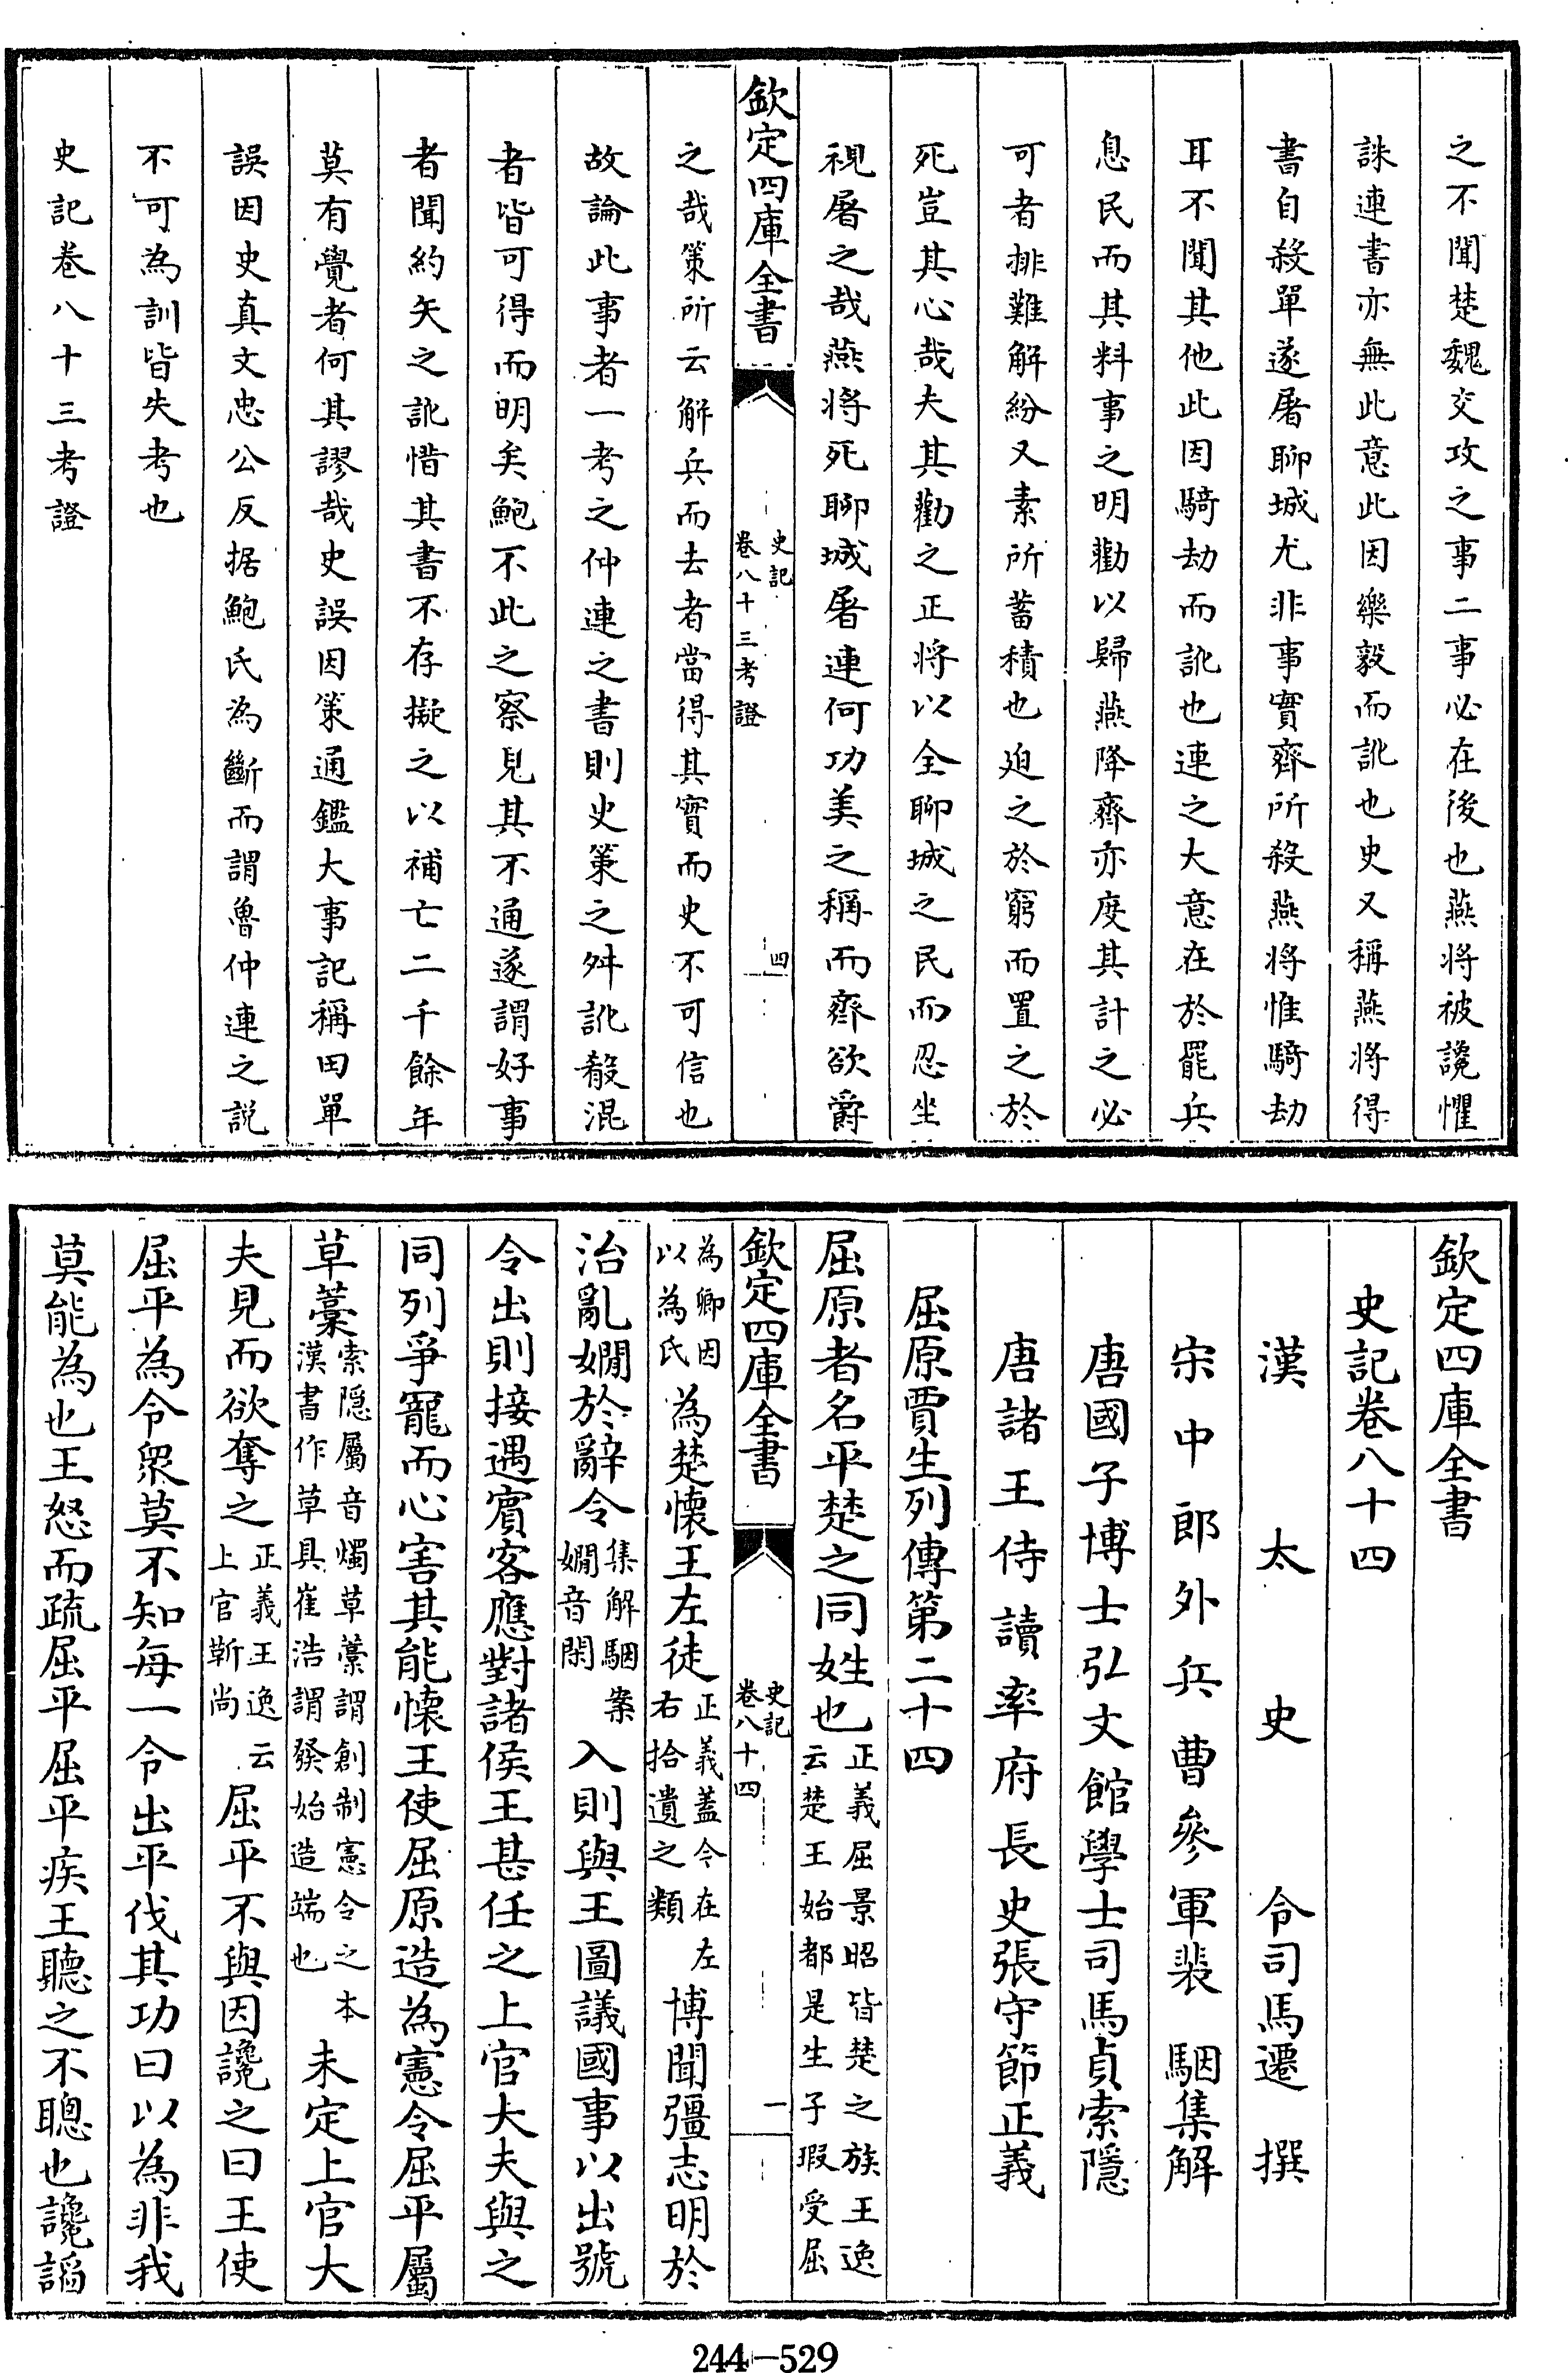 之不聞楚魏交攻之事二事必在後也燕將被讒懼
誅連書亦無此意此因樂毅而訛也史又稱燕將得
書自殺單遂屠聊城尤非事實齊所殺燕將惟騎劫
耳不聞其他此因騎劫而訛也連之大意在於罷兵
息民而其料事之明勸以歸燕降齊亦度其計之必
可者排難解紛又素所蓄積也迫之於窮而置之於
死豈其心哉夫其勸之正將以全聊城之民而忍坐
視屠之哉燕將死聊城屠連何功美之稱而齊欲爵
欽定四庫全書
史記
卷八十三考證
四
之哉策所云解兵而去者當得其實而史不可信也
故論此事者一考之仲連之書則史策之舛訛殽混
者皆可得而明矣鮑不此之察見其不通遂謂好事
者聞約矢之訛惜其書不存擬之以補亡二千餘年
莫有覺者何其謬哉史誤因策通鑑大事記稱田單
誤因史真文忠公反据鮑氏為斷而謂魯仲連之説
不可為訓皆失考也
史記卷八十三考證
欽定四庫全書
史記卷八十四
漢太史令司馬遷撰
宋中郎外兵曹參軍裴駰集解
唐國子博士弘文館學士司馬貞索隱
唐諸王侍讀率府長史張守節正義
屈原賈生列傳第二十四
屈原者名平楚之同姓也正義屈景昭皆楚之族王逸云楚王始都是生子瑕受屈
欽定四庫全書
史記
卷八十四
一
為卿因以為氏為楚懷王左徒正義蓋今在左右拾遺之類博聞彊志明於
治亂嫺於辭令集解駰案嫺音閑入則與王圖議國事以出號
令出則接遇賓客應對諸侯王甚任之上官大夫與之
同列爭寵而心害其能懷王使屈原造為憲令屈平屬
草藳索隱屬音燭草藳謂創制憲令之本漢書作草具崔浩謂發始造端也未定上官大
夫見而欲奪之正義王逸云上官靳尚屈平不與因讒之曰王使
屈平為令衆莫不知每一令出平伐其功曰以為非我
莫能為也王怒而疏屈平屈平疾王聽之不聰也讒謟
244-529